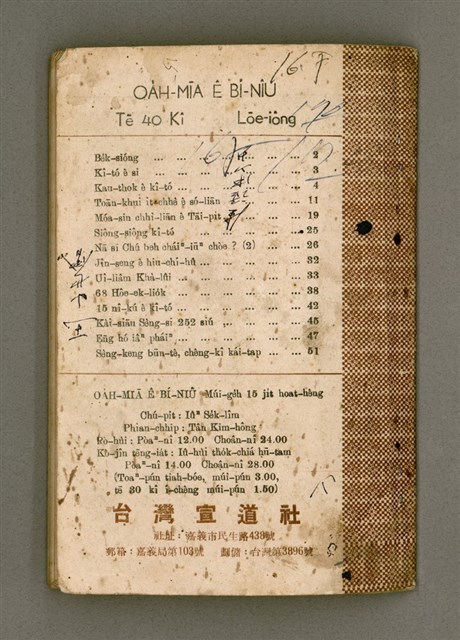 OA̍H-MĪA Ê BÍ-NIÛ
Tē 40 Kî Lōe-iông
Be̍k-sióng ... ... ... ... 2
Kî-tó ê si ... ... ... ... 3
Kau-thok ê kî-tó ... ... ... 4
Toān-khui it-chhè ê só-liān ... ... 11
Móa-sin chhi-liān ê Tāi-pit ... 19
Siông-siông kî-tó ... ... 25
Nā si Chú beh chāiⁿ-iūⁿ chòe ? (2) ... ... 26
Jîn-seng ê hiu-chí-hû ... ... ... 32
Ui-liâm Khà-lûi ... ... ... ... 33
68 Hôe-ek-lio̍k ... ... ... 38
15 nî-kú ê kî-tó ... ... ... 42
Kài-siāu Sèng-si 252 siú ... ... 45
Eng hó lâⁿ pháiⁿ ... ... ... 47
Sèng-keng būn-tê, chèng-kî kái-tap ... ... 51
OA̍H-MIĀ Ê BÍ-NIÛ : Múi-ge̍h 15 ji̍t hoat-hêng
Chú-pit : Iûⁿ Se̍k-lîm
Phian-chhip : Tân Kim-hông
Kò-hùi : Pòaⁿ-nî 12.00 Choân-nî 24.00
Kò-jîn tēng-ia̍t : Iû-hùi tho̍k-chiá hū-tam
Pòaⁿ-nî 14.00 Choân-nî 28.00
(Toaⁿ-pún tiah-bóe, múi-pún 3.00,
tē 30 kî í-chêng múi-pún 1.50)
台灣宣道社
社址：嘉義市民生路438號
郵箱：嘉義局第103號 劃儲：台灣第3896號